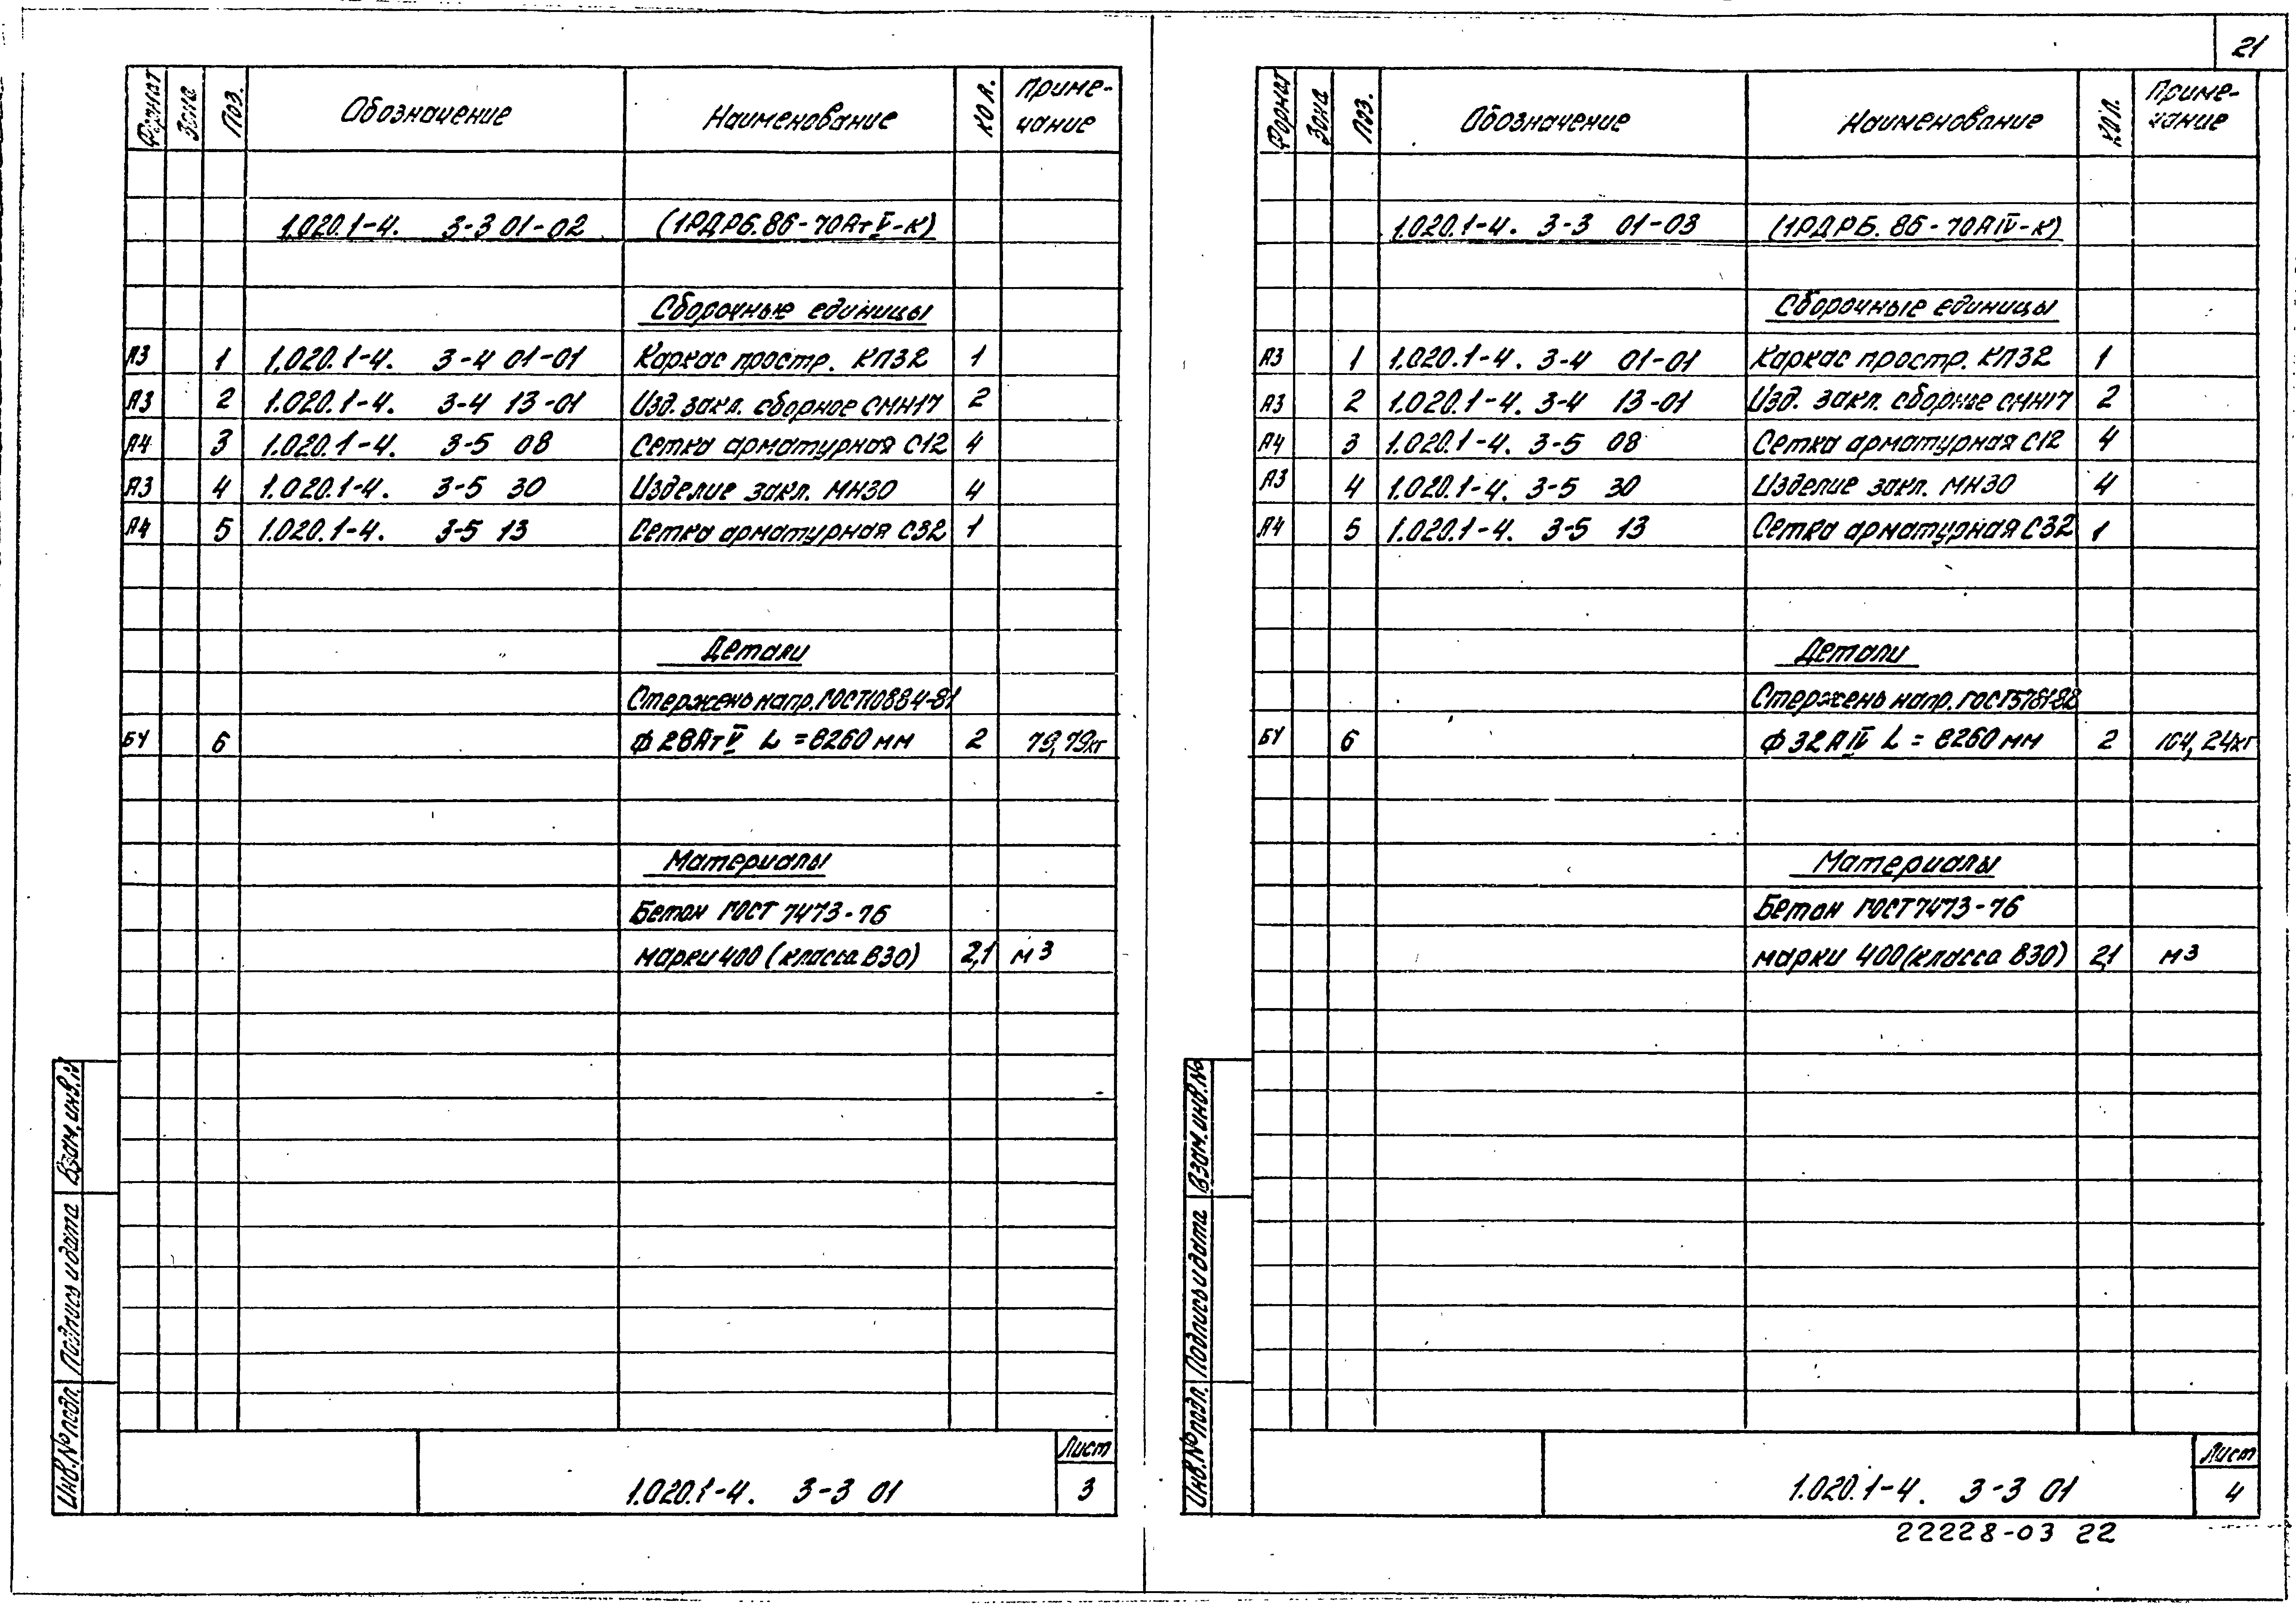 21
Формат Зона Поз. Обозначение Наименование Кол. Приме-
чание
1.020.1-4. 3-3 01-02 (1РДР6.86-70АтV-К)
Сборочные единицы
А3 1 1.020.1-4. 3-4 01-01 Каркас простр. КП32 1
А3 2 1.020.1-4. 3-4 13-01 Изд. закл. сборное СМН17 2
А4 3 1.020.1-4. 3-5 08 Сетка арматурная С12 4
А3 4 1.020.1-4. 3-5 30 Изделие закл. МН30 4
А4 5 1.020.1-4. 3-5 13 Сетка арматурная С32 1
Детали
Стержень напр. ГОСТ10884-81
БЧ 6 ф28АтV L=8260мм 2 79,79кг
Материалы
Бетон ГОСТ 7473-76
марки 400 (класса В30) 2,1 м3
Инв.№подл. Подпись и дата Взам.инв.№
1.020.1-4. 3-3 01
Лист
3
Формат Зона Поз. Обозначение Наименование Кол. Приме-
чание
1.020.1-4. 3-3 01-03 (1РДР6.86-70АIV-К)
Сборочные единицы
А3 1 1.020.1-4. 3-4 01-01 Каркас простр. КП32 1
А3 2 1.020.1-4. 3-4 13-01 Изд. закл. сборное СМН17 2
А4 3 1.020.1-4. 3-5 08 Сетка арматурная С12 4
А3 4 1.020.1-4. 3-5 30 Изделие закл. МН30 4
А4 5 1.020.1-4. 3-5 13 Сетка арматурная С32 1
Детали
Стержень напр. ГОСТ5781-82
БЧ 6 ф32АIV L=8260мм 2 104,24кг
Материалы
Бетон ГОСТ7473-76
марки 400 (класса В30) 2,1 м3
Инв.№подл. Подпись и дата Взам.инв.№
1.020.1-4. 3-3 01
Лист
4
22228-03 22